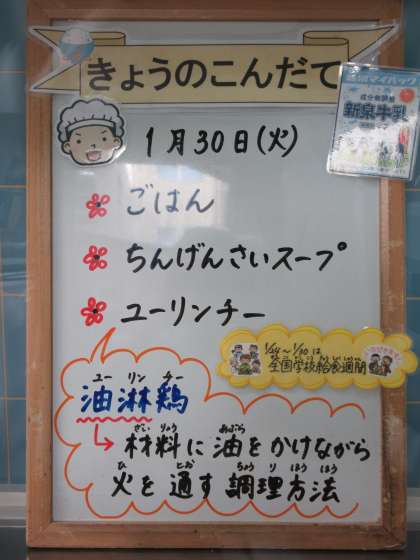 きょうのこんだて
成分無調整
新泉牛乳
1月30日(火)
ごはん
ちんげんさいスープ
ユーリンチー
1/24～1/30は
全国学校給食週間
ユーリンチー
油淋鶏
ざいりょう あぶら
→材料に油をかけながら
ひ とお ちょうりほうほう
火を通す調理方法